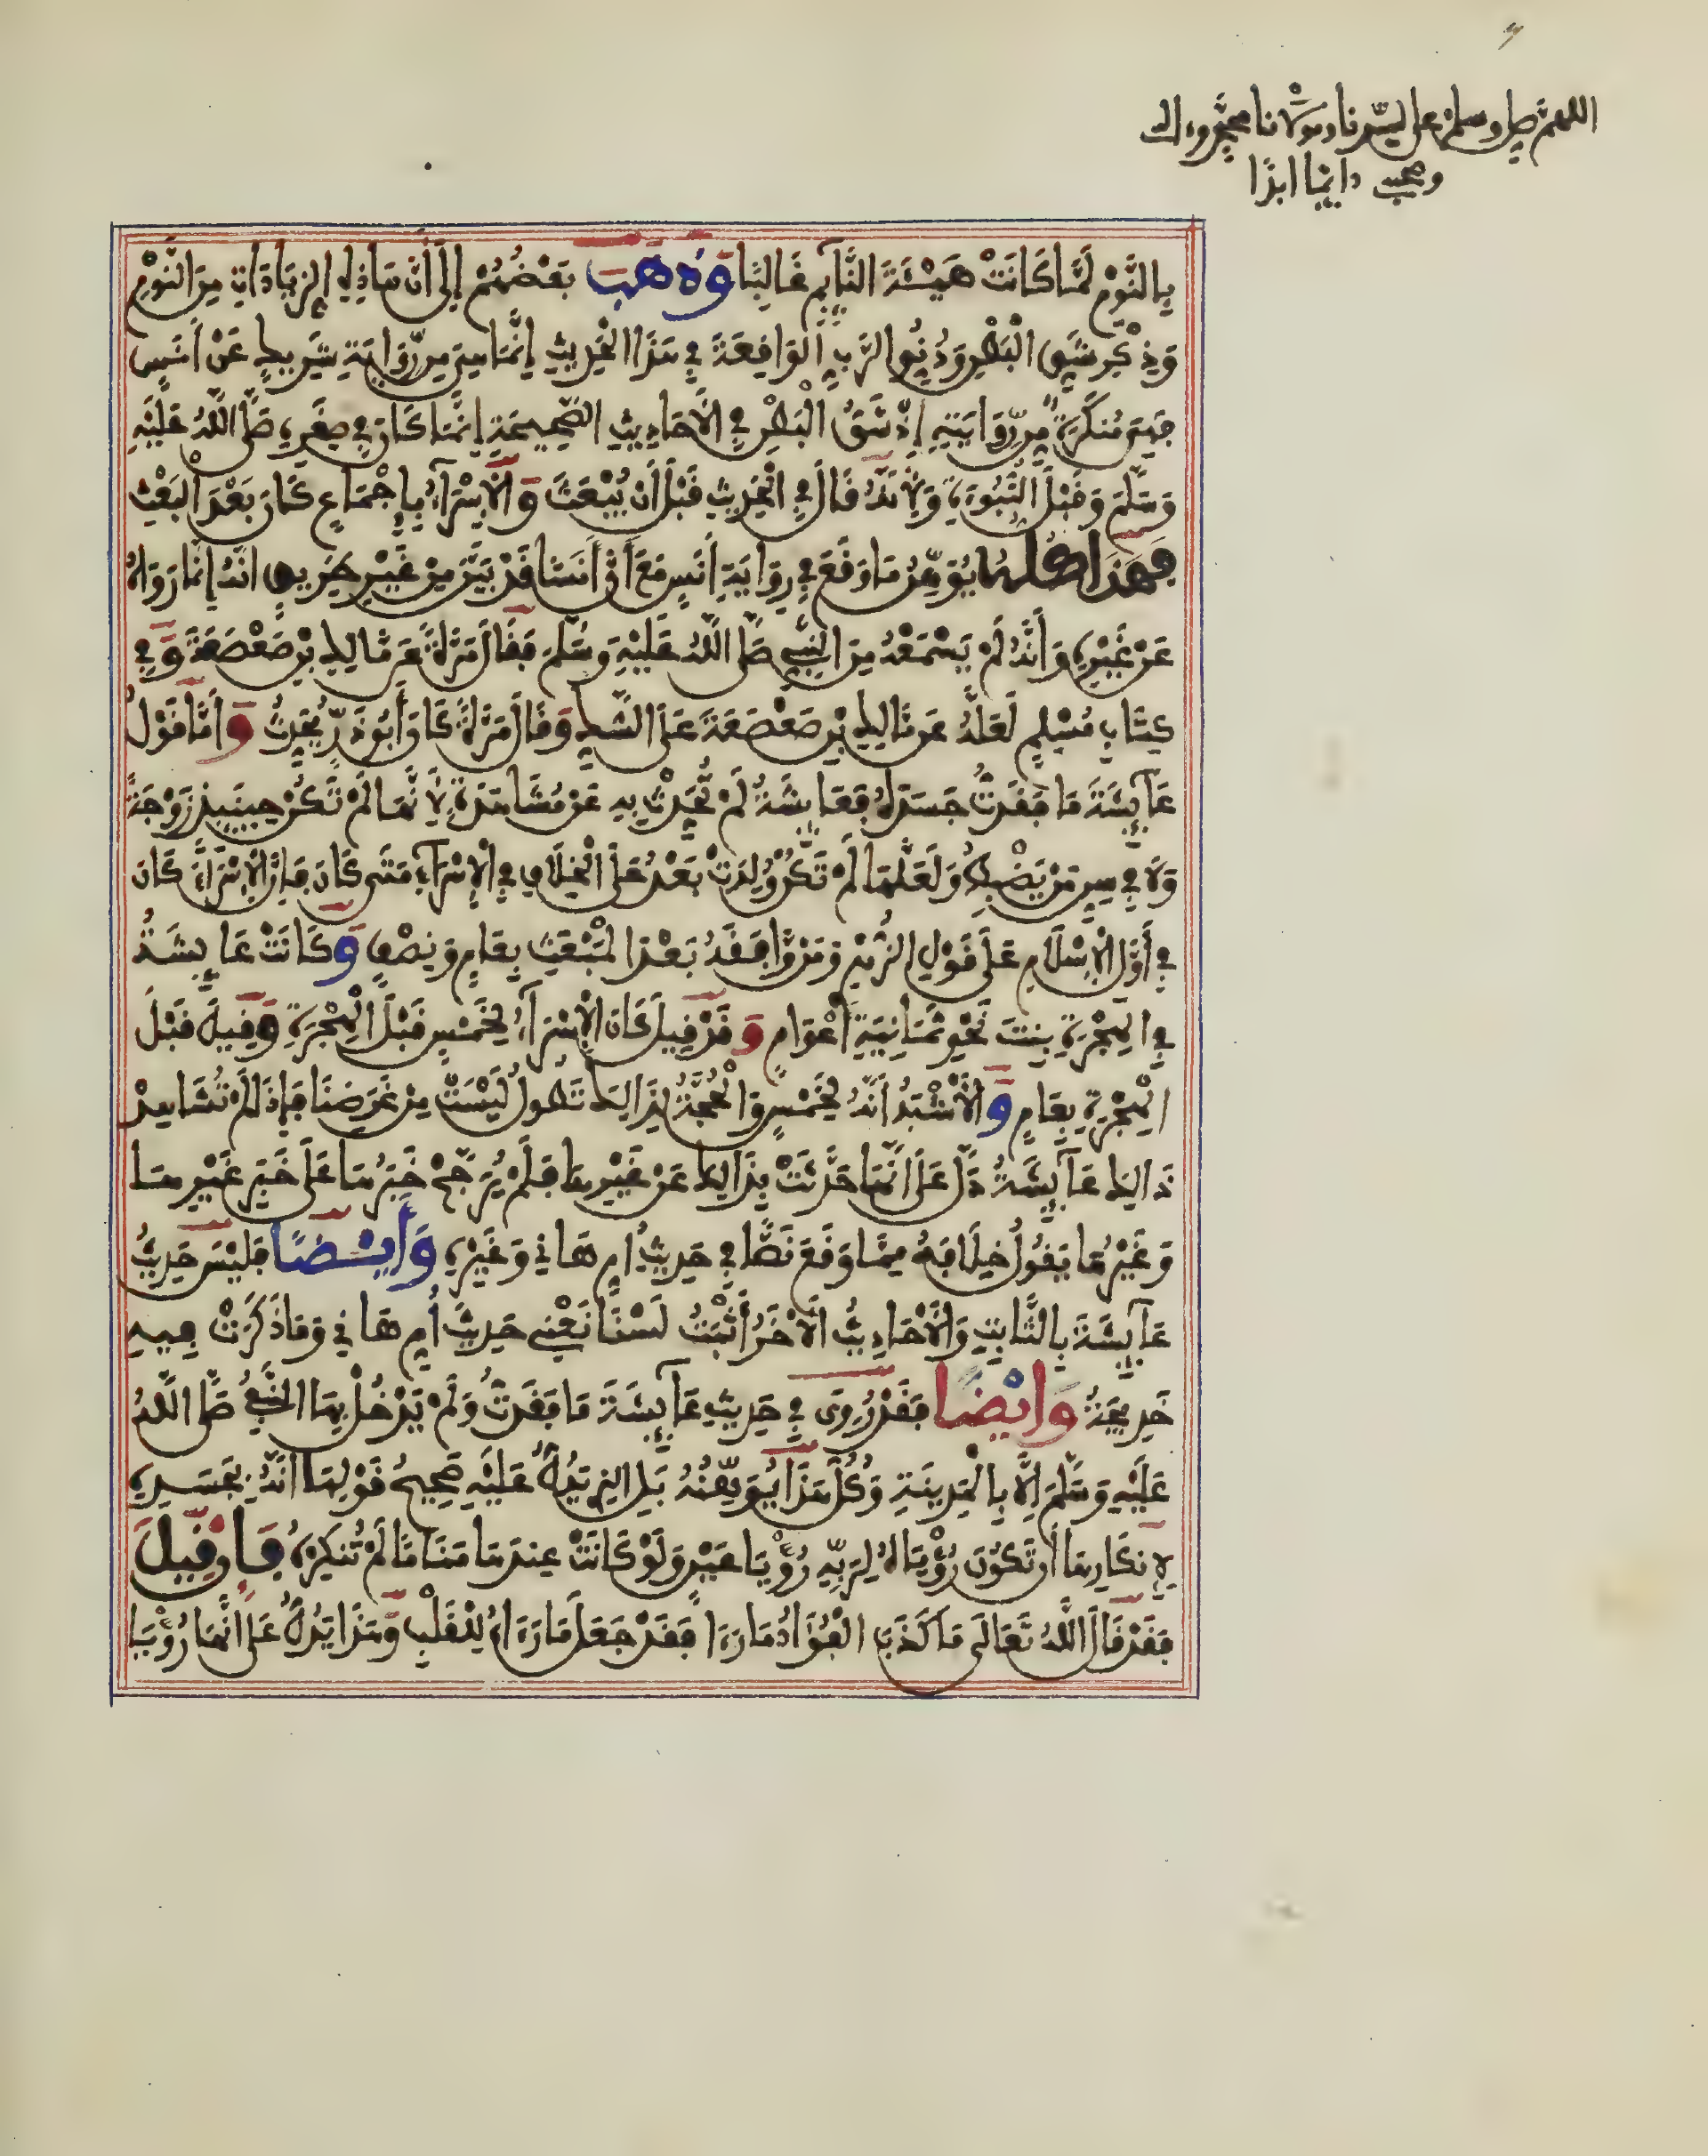 اللهم صل وسلم على سيدنا ومولانا محمد وءاله
وصحبه دائما ابدا
بِالنَّوْمِ لَمَّا كَانَتْ هَيْئَةَ النَّآئِمِ غَالِبًا وَذَهَبَ بَعْضُهُمْ إِلَى أَنَّ هَاذِهِ الزِّيَادَاتِ مِنَ النَّوْمِ
وَذِكْرِ شَقِّ الْبَطْنِ وَدُنُوِّ الرَّبِّ الْوَاقِعَةَ فِي هَذَا الْحَدِيثِ إِنَّمَا هِيَ مِن رِّوَايَةِ شَرِيكٍ عَنْ أَنَسٍ
فَهِيَ مُنكَرَةٌ مِن رِّوَايَتِهِ إِذْ شَقُّ الْبَطْنِ فِي الْأَحَادِيثِ الصَّحِيحَةِ إِنَّمَا كَانَ فِي صِغَرِهِ صَلَّى اللَّهُ عَلَيْهِ
وَسَلَّمَ وَقَبْلَ النُّبُوءَةِ وَلِأَنَّهُ قَالَ فِي الْحَدِيثِ قَبْلَ أَنْ يُبْعَثَ وَالْإِسْرَآءُ بِإِجْمَاعٍ كَانَ بَعْدَ الْبَعْثِ
فَهَذَا كُلُّهُ يُوَهِّنُ مَا وَقَعَ فِي رِوَايَةِ أَنَسٍ مَعَ أَنَّ أَنَسًا قَدْ بَيَّنَ مِنْ غَيْرِ طَرِيقٍ أَنَّهُ إِنَّمَا رَوَاهُ
عَنْ غَيْرِهِ وَأَنَّهُ لَمْ يَسْمَعْهُ مِنَ النَّبِيِّ صَلَّى اللَّهُ عَلَيْهِ وَسَلَّمَ فَقَالَ مَرَّةً عَن مَّالِكِ بْنِ صَعْصَعَةَ وَفِي
كِتَابِ مُسْلِمٍ لَعَلَّهُ عَن مَّالِكِ بْنِ صَعْصَعَةَ عَلَى الشَّكِّ وَقَالَ مَرَّةً كَانَ أَبُو ذَرٍّ يُحَدِّثُ وَأَمَّا قَوْلُ
عَآئِشَةَ مَا فَقَدتُّ جَسَدَهُ فَعَائِشَةُ لَمْ تُحَدِّثْ بِهِ عَنْ مُشَاهَدَةٍ لِأَنَّهَا لَمْ تَكُنْ حِينَئِذٍ زَوْجَهُ
وَلَا فِي سِنِّ مَنْ يَضْبِطُ وَلَعَلَّهَا لَمْ تَكُنْ وُلِدَتْ بَعْدُ عَلَى الْخِلَافِ فِي الْإِسْرَآءِ مَتَى كَانَ فَإِنَّ الْإِسْرَآءَ كَانَ
فِي أَوَّلِ الْإِسْلَامِ عَلَى قَوْلِ الزُّهْرِيِّ وَمَن وَّافَقَهُ بَعْدَ الْمَبْعَثِ بِعَامٍ وَنِصْفٍ وَكَانَتْ عَائِشَةُ
فِي الْهِجْرَةِ بِنْتَ نَحْوِ ثَمَانِيَةِ أَعْوَامٍ وَقَدْ قِيلَ كَانَ الْإِسْرَآءُ لِخَمْسٍ قَبْلَ الْهِجْرَةِ وَقِيلَ قَبْلَ
الْهِجْرَةِ بِعَامٍ وَالْأَشْبَهُ أَنَّهُ لِخَمْسٍ وَالْحُجَّةُ لِذَالِكَ تَطُولُ لَيْسَتْ مِنْ غَرَضِنَا فَإِذَا لَمْ تُشَاهِدْ
ذَالِكَ عَآئِشَةُ دَلَّ عَلَى أَنَّهَا حَدَّثَتْ بِذَالِكَ عَنْ غَيْرِهَا فَلَمْ يُرَجَّحْ خَبَرُهَا عَلَى خَبَرِ غَيْرِهَا
وَغَيْرُهَا يَقُولُ خِلَافَهُ مِمَّا وَقَعَ نَصًّا فِي حَدِيثِ أُمِّ هَانِي وَغَيْرِهِ وَأَيْضًا فَلَيْسَ حَدِيثُ
عَآئِشَةَ بِالثَّابِتِ وَالْأَحَادِيثُ الْأُخَرُ أَثْبَتُ لَسْنَا نَعْنِي حَدِيثَ أُمِّ هَانِي وَمَا ذَكَرَتْ فِيهِ
خَدِيجَةُ وَأَيْضًا فَقَدْ رُوِيَ فِي حَدِيثِ عَآئِشَةَ مَا فَقَدتُّ وَلَمْ يَدْخُلْ بِهَا النَّبِيُّ صَلَّى اللَّهُ
عَلَيْهِ وَسَلَّمَ إِلَّا بِالْمَدِينَةِ وَكُلُّ هَذَا يُوَهِّنُهُ بَلِ الذِي يَدُلُّ عَلَيْهِ صَحِيحُ قَوْلِهَا أَنَّهُ بِجَسَدِهِ
لِإِنكَارِهَا أَن تَكُونَ رُؤْيَاهُ لِرَبِّهِ رُؤْيَا عَيْنٍ وَلَوْ كَانَتْ عِندَهَا مَنَامًا لَمْ تُنكِرْهُ فَإِن قِيلَ
فَقَدْ قَالَ اللَّهُ تَعَالَى مَا كَذَبَ الْفُؤَادُ مَا رَءَا فَقَدْ جَعَلَ مَا رَءَاهُ لِلْقَلْبِ وَهَذَا يَدُلُّ عَلَى أَنَّهَا رُؤْيَا